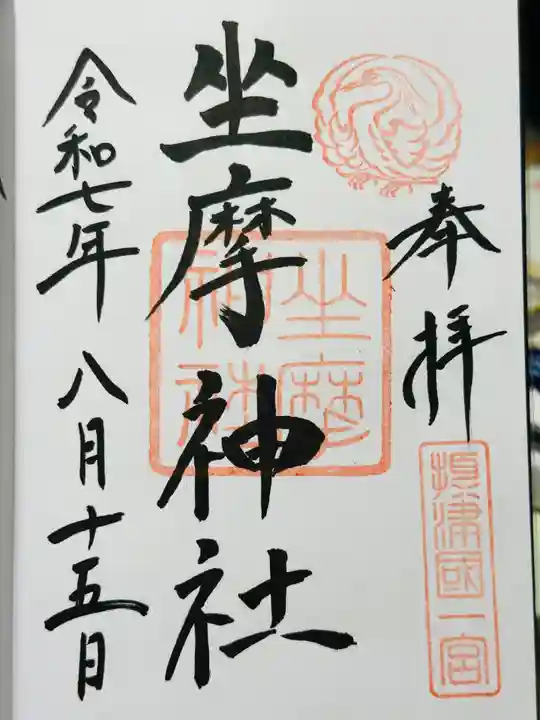 奉拝
攝津國一宮
坐摩神社
坐摩神社
令和七年八月十五日